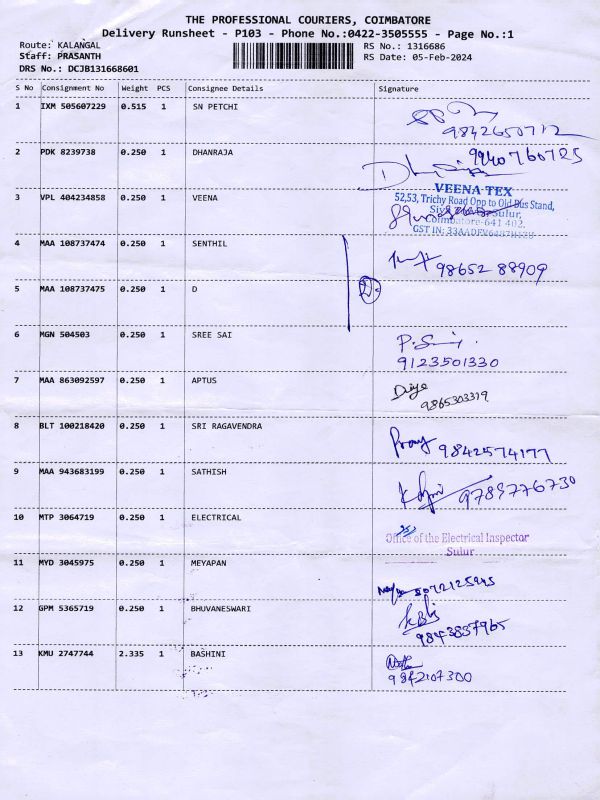 THE PROFESSIONAL COURIERS, COIMBATORE
Delivery Runsheet - P103 - Phone No.:0422-3505555 - Page No.:1
Route: KALANGAL
RS No.: 1316686
Staff: PRASANTH
RS Date: 05-Feb-2024
DRS No.: DCJB131668601
S No Consignment No Weight PCS Consignee Details Signature
1 IXM 505607229 0.515 1 SN PETCHI
9842650712
2 PDK 8239738 0.250 1 DHANRAJA 9940760725
3 VPL 404234858 0.250 1 VEENA
VEENA TEX
52,53, Trichy Road Opp to Old Bus Stand,
Sulur,
Coimbatore-641 402.
GST IN:
4 MAA 108737474 0.250 1 SENTHIL
98652 88909
5 MAA 108737475 0.250 1 D
2
6 MGN 504503 0.250 1 SREE SAI
9123501330
7 MAA 863092597 0.250 1 APTUS
Divya
9865303319
8 BLT 100218420 0.250 1 SRI RAGAVENDRA
9842574177
9 MAA 943683199 0.250 1 SATHISH
9789776730
10 MTP 3064719 0.250 1 ELECTRICAL
Office of the Electrical Inspector
Sulur
11 MYD 3045975 0.250 1 MEYAPAN
12 GPM 5365719 0.250 1 BHUVANESWARI
9843837965
13 KMU 2747744 2.335 1 BASHINI
9842107300